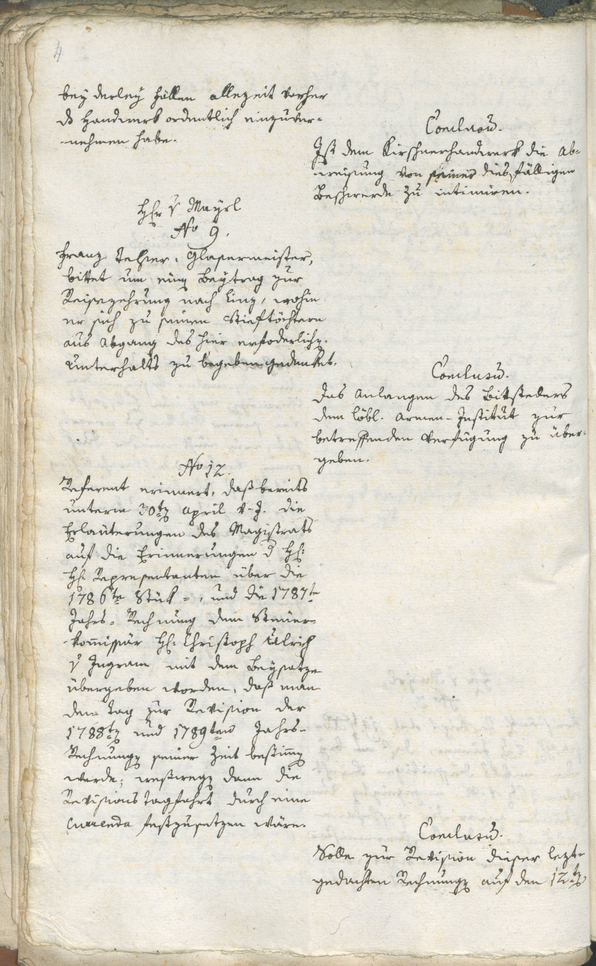 4
bey derley Fällen allezeit vorher
ds Handwerk ordentlich einzuver-
nehmen habe.
Conclusū.
Ist dem Kirschnerhandwerk die Ab-
weisung von seiner diesfälligen
Beschwerde zu intimiren.
Hr. v Mayrl
No 9.
Franz Glasermeister,
bittet um eing Beytrag zur
Reisezehrung nach Linz, wohin
er sich zu seinen Stieftöchtern
aus Abgang des hier erforderlichen
Unterhalts zu begeben gedenket.
Conclusū.
Das Anlangen des Bittstellers
dem löbl. Armen-Institut zur
betreffenden Verfügung zu über-
geben.
No 12.
Referent erinnert, daß bereits
unterm 30ten April d. J. die
Erläuterungen des Magistrats
auf die Erinnerungen d HH.
HH. Representanten über die
1786te Stük-, und die 1787te
Jahrs-Rechnung dem Steuer-
kom̄issär H. Christoph Ulrich
v Ingram mit dem Beysatze
übergeben worden, daß man
den Tag zur Revision der
1788ten und 1789ten Jahrs-
Rechnungen seiner Zeit bestim̄en
werde; weßwegen dann die
Revisionstagfahrt durch eine
Currenda festzusetzen wäre.
Conclusū.
Solle zur Revision dieser lezt-
gedachten Rechnungen auf den 12ten